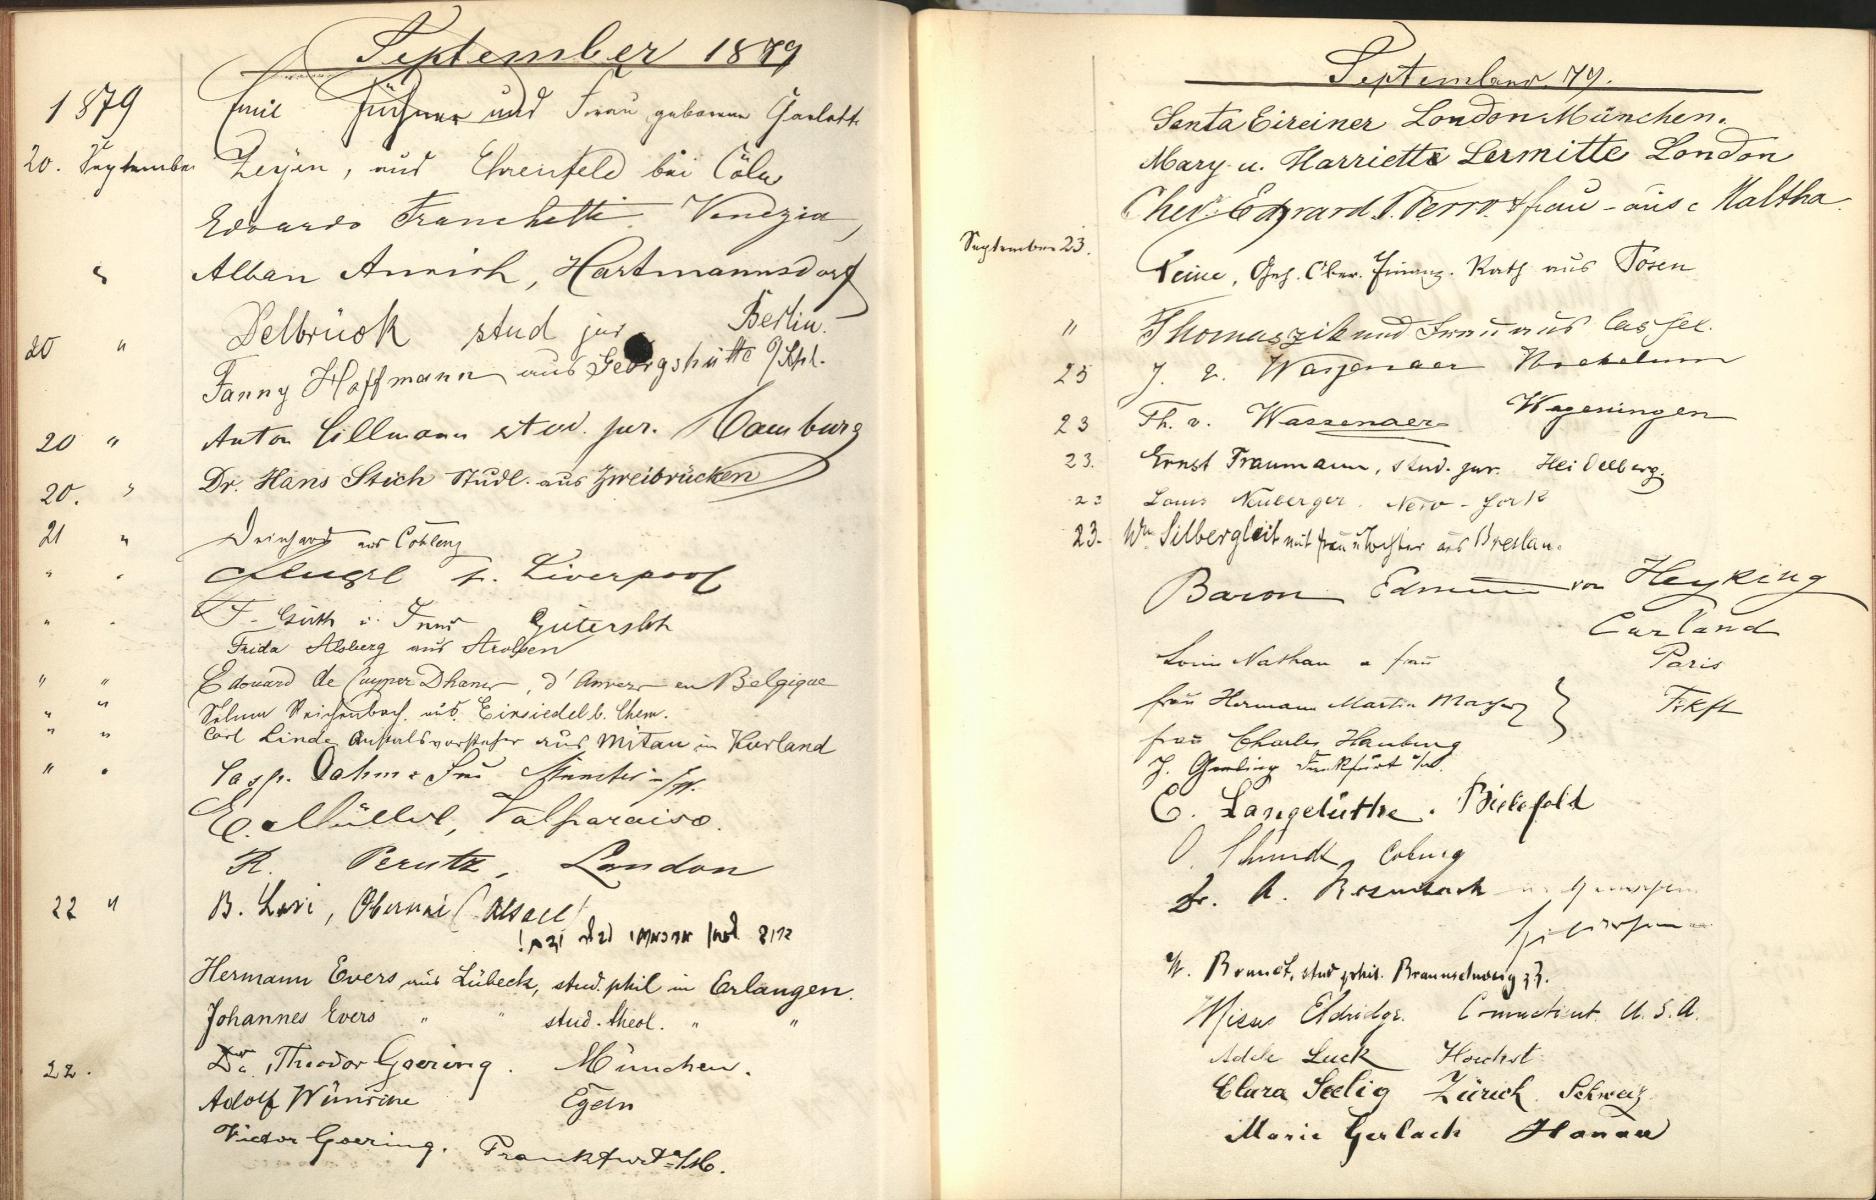 September 1879
1879 Emil und Frau geborene
20. September Zeyen, aus Ehrenfeld bei Cöln
Edoardo Franchetti Venezia,
" Alban Anrich, Hartmannsdorf
20 " Delbrück stud jur Berlin.
Fanny Hoffmann aus Georgshütte
20 " Anton Cillmann stud. jur. Hamburg
20. " Dr. Hans Stich Studl. aus Zweibrücken
21 " Deinhard aus Coblenz
" " Liverpool
" " F. Güth u. Frau Gütersloh
Frida Alsberg aus Arolsen
" " Edouard de Cuyper Dhanis, d'Anvers en Belgique
" " Selma Reichenbach aus Einsiedel b. Chem.
" " Carl Linde Anstaltsvorsteher aus Mitau in Kurland
" " Casp. Dahm
E. Müller, Valparaiso.
R. Perutz, London
22 " B. Levi, Obernai (Alsace)
Hermann Evers aus Lübeck, stud. phil in Erlangen.
Johannes Evers " " stud. theol. " "
22. Dr. Theodor Goering. München.
Adolf Egeln
Victor Goering. Frankfurt a/M.
September 79.
Senta Eireiner London München.
Mary u. Harriette Lermitte London
Chev. Edward V. Ferro & frau - aus Maltha.
September 23. Geh. Ober. Finanz. Rath aus Posen
" Thomaszik und Frau aus Cassel.
25 J. v. Wassenaer
23 Th. v. Wassenaer Wageningen
23. Ernst Traumann, stud. jur. Heidelberg.
23 Louis Neuberger. New-York
23. Wm Silbergleit mit frau u Tochter aus Breslau.
Baron Edmund von Heyking
Curland
Louis Nathan u frau Paris
frau Hermann Martin Mayer } Frkft
frau Charles Hanburg
J. Frankfurt a/M.
E. Langelüthe. Bielefeld
O. Schmidt, Coburg
Dr. A. Rosenbach
W. Brandt, stud. phil. Braunschweig
Eldridge. Connecticut U.S.A.
Adele Luck Höchst
Clara Seelig Zürich Schweiz
Marie Gerlach Hanau